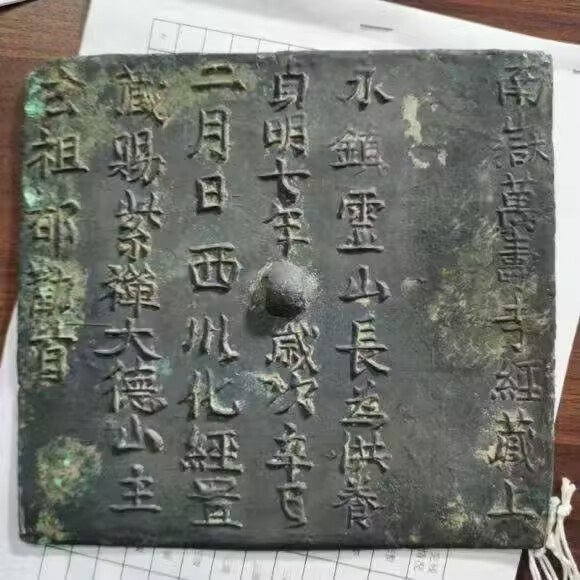 南嶽萬壽寺經藏上
永鎮靈山長為供養
貞明七年歲次辛巳
二月日西川化經置
藏賜紫禪大德山主
玄祖 勸首